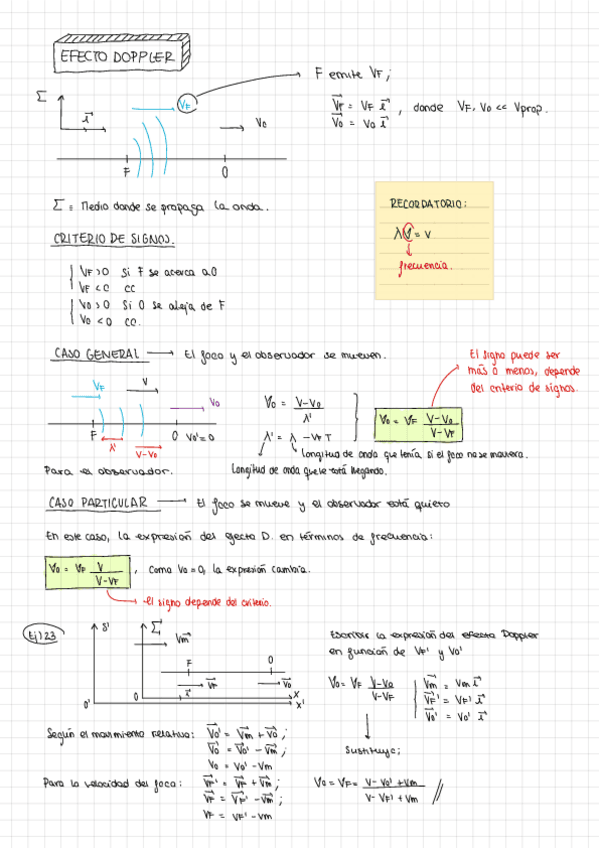 EFECTO DOPPLER
F emite VF;
Σ
VF
i⃗
V0
F
O
V⃗F = VF i⃗
V⃗0 = V0 i⃗ , donde VF, V0 << Vprop.
Σ ≡ Medio donde se propaga la onda.
RECORDATORIO:
λν = v
frecuencia.
CRITERIO DE SIGNOS.
VF > 0 Si F se acerca a O
VF < 0 CC
V0 > 0 Si O se aleja de F
V0 < 0 CC.
CASO GENERAL → El foco y el observador se mueven.
El signo puede ser
más o menos, depende
del criterio de signos.
VF
V
V0
F
λ'
V-V0
O V0'=0
ν0 = (V-V0)/λ'
λ' = λ - VF T
ν0 = νF (V-V0)/(V-VF)
longitud de onda que tenía si el foco no se moviera.
Para el observador.
Longitud de onda que le está llegando.
CASO PARTICULAR → El foco se mueve y el observador está quieto
En este caso, la expresión del efecto D. en términos de frecuencia:
ν0 = νF V/(V-VF) , como V0=0, la expresión cambia.
el signo depende del criterio.
Ej) 23
S'
Σ
V⃗m
F
O
V⃗F
V⃗0
i⃗
O
X
O'
X'
Escribir la expresión del efecto Doppler
en función de VF' y V0'
ν0 = νF (V-V0)/(V-VF)
V⃗m = Vm i⃗
V⃗F' = VF' i⃗
V⃗0' = V0' i⃗
Según el movimiento relativo: V⃗0' = V⃗m + V⃗0 ;
V⃗0 = V⃗0' - V⃗m ;
V0 = V0' - Vm
Sustituye;
Para la velocidad del foco: V⃗F' = V⃗F + V⃗m ;
V⃗F = V⃗F' - V⃗m ;
VF = VF' - Vm
ν0 = νF = (V - V0' + Vm)/(V - VF' + Vm) //